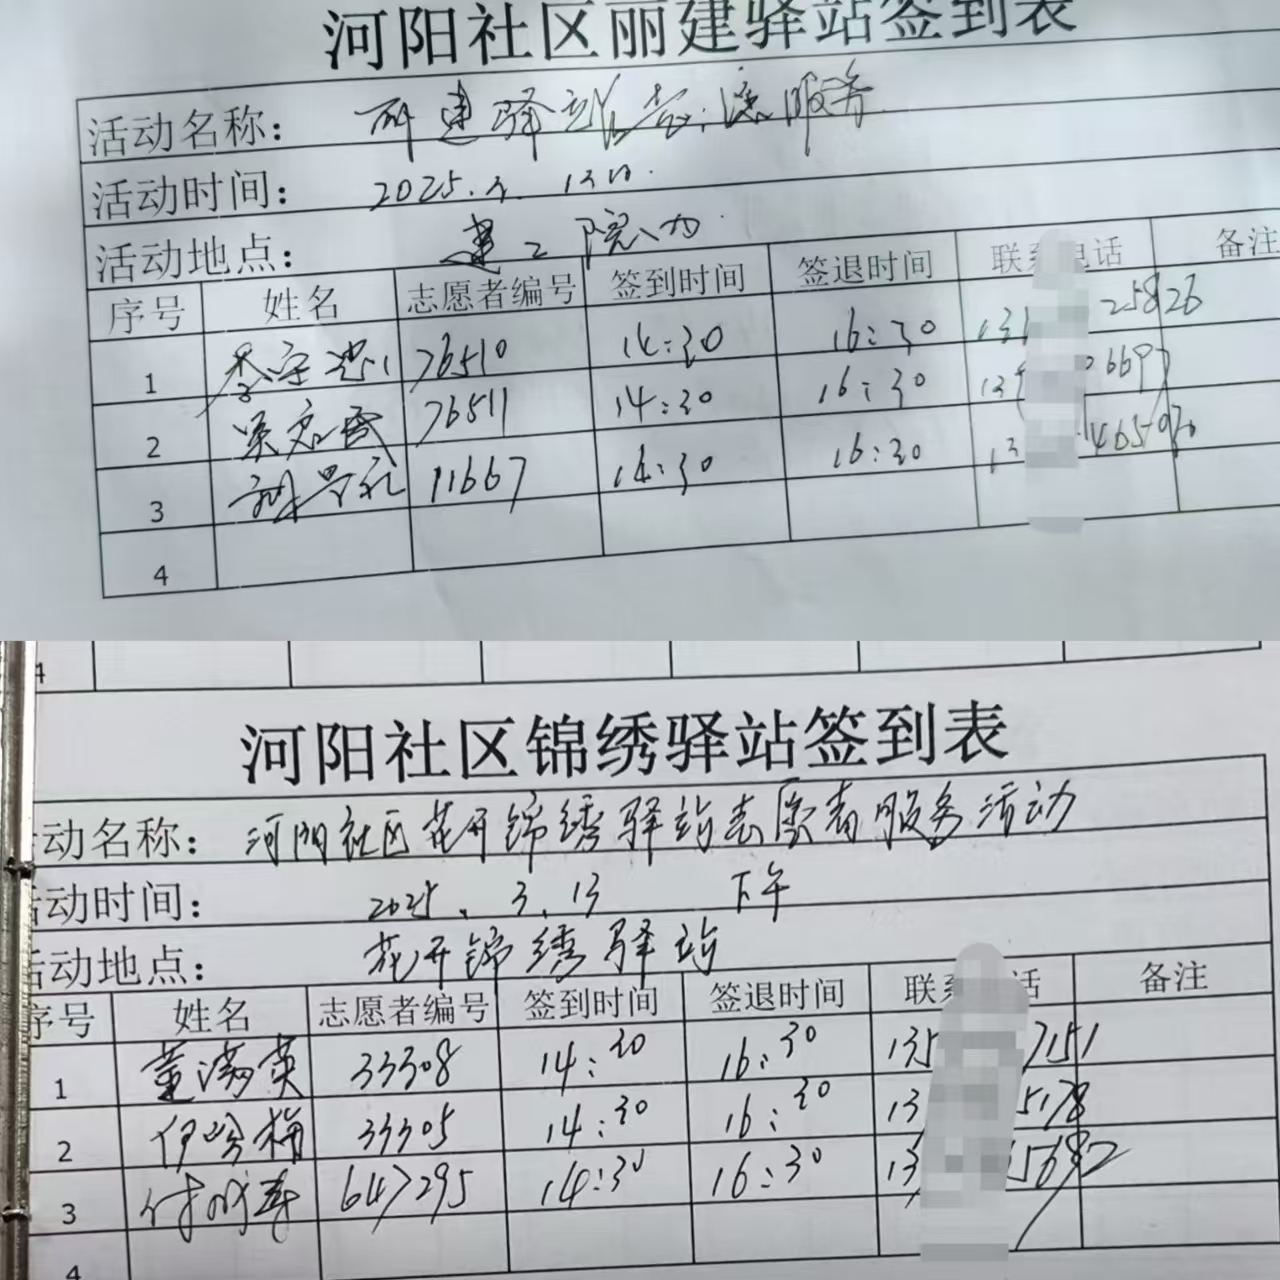 河阳社区丽建驿站签到表
活动名称： 丽建驿站志愿服务
活动时间： 2025.3.13日.
活动地点： 建工院内
序号 姓名 志愿者编号 签到时间 签退时间 联系电话 备注
1 76510 14:30 16:30 25826
2 76511 14:30 16:30 6697
3 11667 14:30 16:30
4
4
河阳社区锦绣驿站签到表
活动名称： 河阳社区花开锦绣驿站志愿者服务活动
活动时间： 2025. 3. 13 下午
活动地点： 花开锦绣驿站
序号 姓名 志愿者编号 签到时间 签退时间 联 话 备注
1 董满英 33308 14:30 16:30 135 7151
2 33305 14:30 16:30 13 5178
3 647295 14:30 16:30 13 5682
4